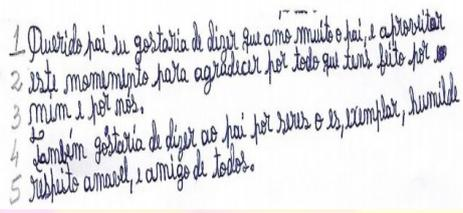 1 Querido pai eu gostaria de dizer que amo muito o pai, e aproveitar
2 este momemnto para agradecer por todo que tens feito por
3 mim e por nós.
4 Também gostaria de dizer ao pai por seres o es, exemplar, humilde
5 respeito amavel, e amigo de todos.